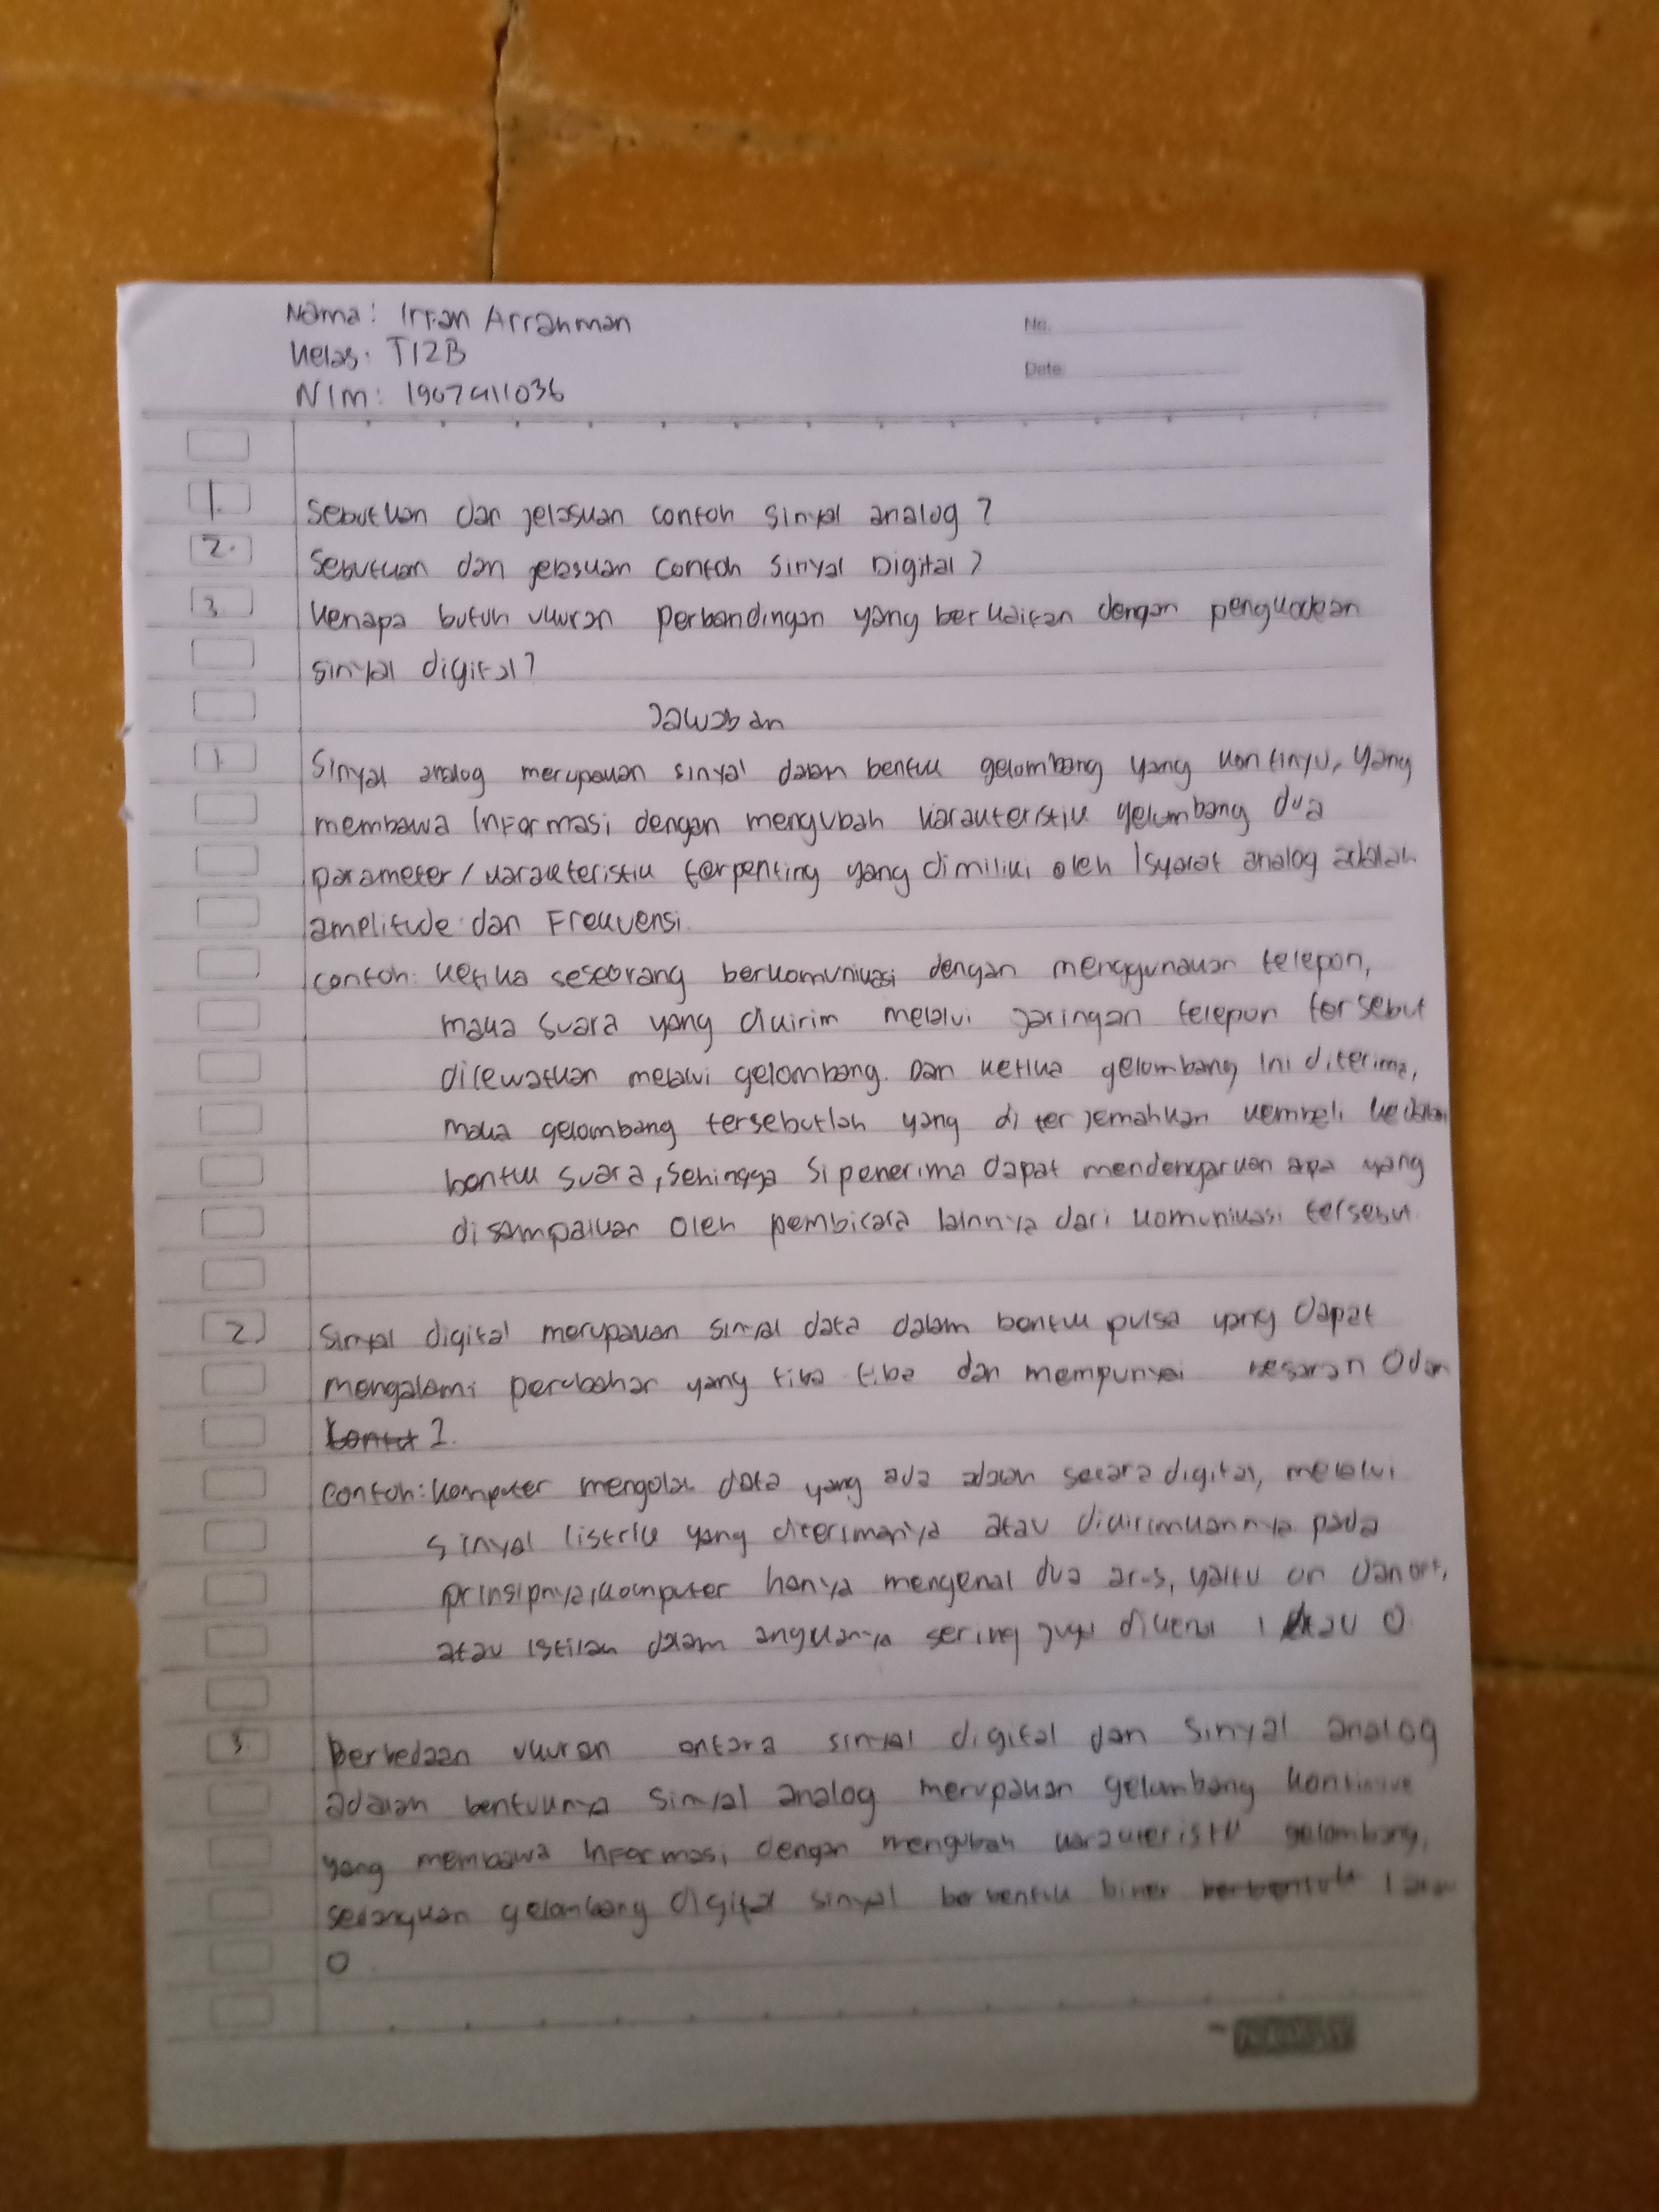 Nama: Irfan Arrahman
No.
Kelas: TI2B
Date:
NIM: 1907411036
1. Sebutkan dan jelaskan contoh sinyal analog?
2. Sebutkan dan jelaskan contoh Sinyal Digital?
3. Kenapa butuh ukuran perbandingan yang berkaitan dengan pengkodean
sinyal digital?
Jawaban
1. Sinyal analog merupakan sinyal dalam bentuk gelombang yang kontinyu, yang
membawa Informasi dengan mengubah karakteristik gelombang dua
parameter/karakteristik terpenting yang dimiliki oleh Isyarat analog adalah
amplitude dan Frekuensi.
contoh: ketika seseorang berkomunikasi dengan menggunakan telepon,
maka suara yang dikirim melalui jaringan telepon tersebut
dilewatkan melalui gelombang. Dan ketika gelombang Ini diterima,
maka gelombang tersebutlah yang diterjemahkan kembali kedalam
bentuk suara, sehingga Si penerima dapat mendengarkan apa yang
disampaikan oleh pembicara lainnya dari komunikasi tersebut.
2. Sinyal digital merupakan sinyal data dalam bentuk pulsa yang dapat
mengalami perubahan yang tiba tiba dan mempunyai besaran 0 dan
1.
Contoh: Komputer mengolah data yang ada adalah secara digital, melalui
sinyal listrik yang diterimanya atau dikirimkannya pada
prinsipnya, komputer hanya mengenal dua arus, yaitu on dan off,
atau Istilah dalam angkanya sering juga dikenal 1 atau 0.
3. Perbedaan ukuran antara sinyal digital dan Sinyal analog
adalah bentuknya sinyal analog merupakan gelombang kontinue
yang membawa Informasi dengan mengubah karakteristik gelombang,
sedangkan gelombang digital sinyal berbentuk biner berbentuk 1 atau
0.